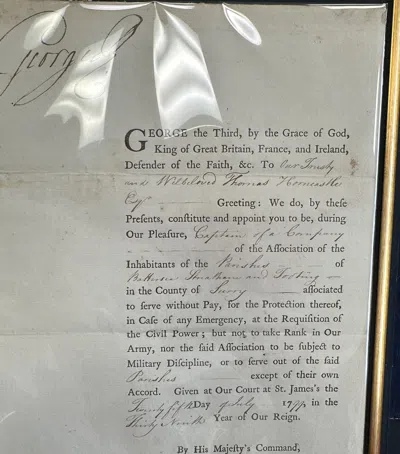 George R
GEORGE the Third, by the Grace of God,
King of Great Britain, France, and Ireland,
Defender of the Faith, &c. To Our Trusty
and Welbeloved Thomas Horncastle
Esqr Greeting: We do, by these
Presents, constitute and appoint you to be, during
Our Pleasure, Captain of a Company
of the Association of the
Inhabitants of the Parishes of
Battersea Streatham and Tooting
in the County of Surry associated
to serve without Pay, for the Protection thereof,
in Case of any Emergency, at the Requisition of
the Civil Power; but not to take Rank in Our
Army, nor the said Association to be subject to
Military Discipline, or to serve out of the said
Parishes except of their own
Accord. Given at Our Court at St. James's the
Twenty fifth Day of July 1799, in the
Thirty Ninth Year of Our Reign.
By His Majesty's Command,